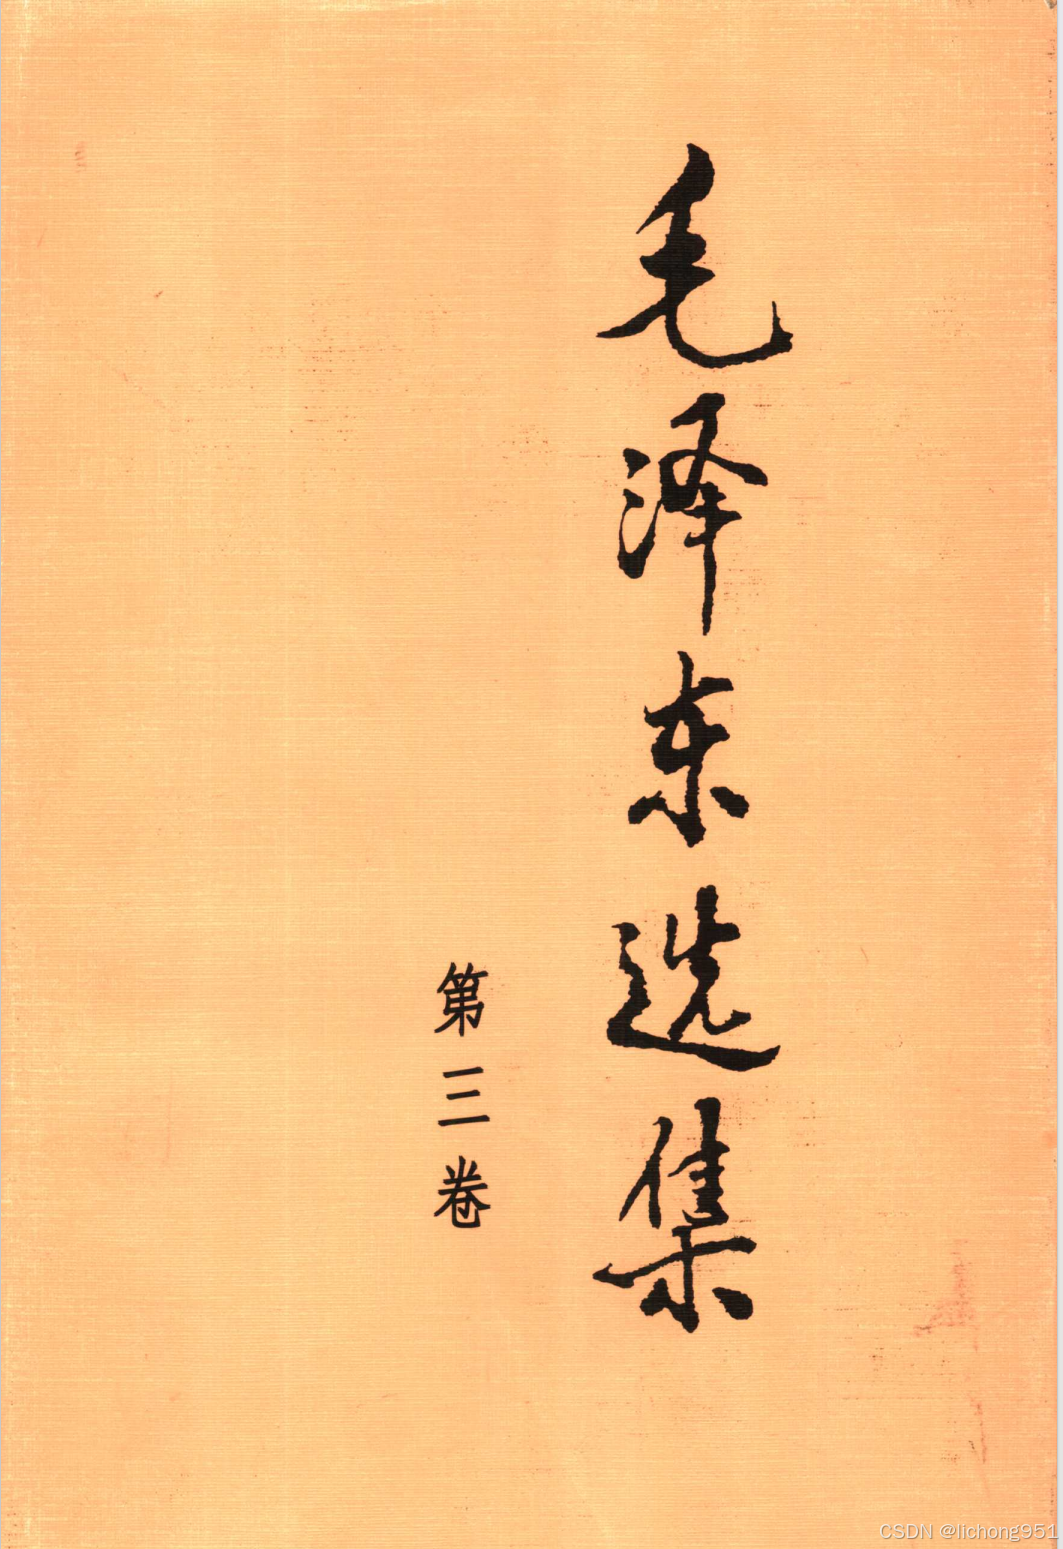 毛泽东选集
第三卷
CSDN @lichong951